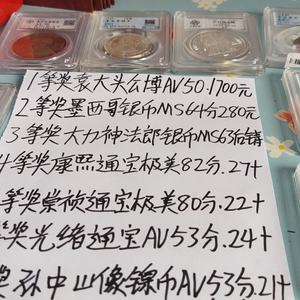 1等奖袁大头公博AV50.1700元
2等奖墨西哥银币MS64分280元
3等奖大力神法郎银币MS63后铸
4等奖康熙通宝极美82分.27+
等奖崇祯通宝极美80分.22+
等奖光绪通宝AV53分.24+
奖孙中山像镍币AV53分21+